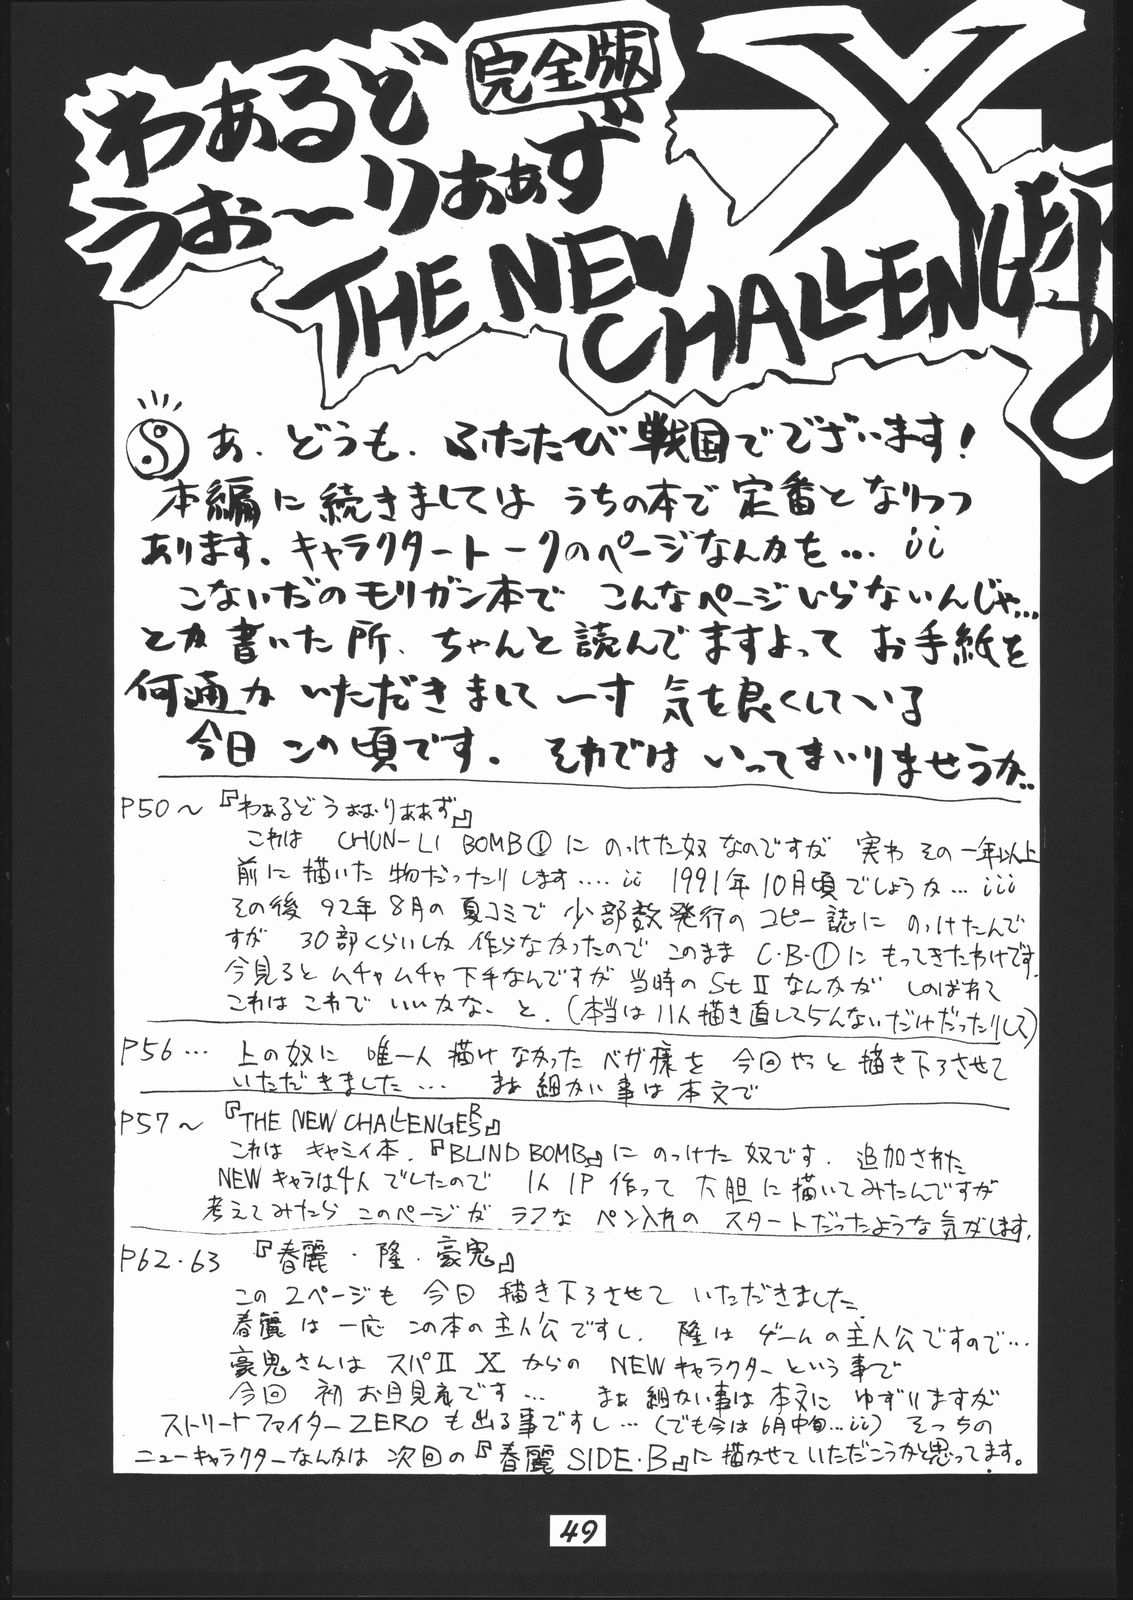 わぁるど 完全版
うぉ〜りぁぁず X
THE NEW
CHALLENGERS
あ、どうも、ふたたび戦国でございます!
本編に続きましては うちの本で定番となりつつ
あります、キャラクタートークのページなんかを…
こないだのモリガン本で こんなページいらないんじゃ…
とか書いた所、ちゃんと読んでますよって お手紙を
何通か いただきまして 一寸 気を良くしている
今日この頃です。 それでは いってまいりませうか..
P50〜『わぁるどうぉぉりぁぁず』
これは CHUN-LI BOMB①に のっけた奴なのですが 実わ その一年以上
前に描いた物だったりします…. 1991年10月頃でしょうか…
その後 92年8月の夏コミで 少部数発行のコピー誌に のっけたんで
すが 30部くらいしか作らなかったので このまま C・B・①に もってきたわけです。
今見ると ムチャムチャ下手なんですが 当時のStⅡなんかが しのばれて
これは これで いいかな、と。(本当は 11人描き直してらんないだけだったりして)
P56… 上の奴に 唯一人 描けなかった ベガ様を 今回やっと描き下ろさせて
いただきました… まぁ 細かい事は本文で
P57〜『THE NEW CHALLENGERS』
これは キャミィ本、『BLIND BOMB』に のっけた奴です。追加された
NEWキャラは4人でしたので 1人1P作って 大胆に描いてみたんですが
考えてみたら このページが ラフな ペン入れの スタートだったような気がします。
P62・63 『春麗・隆・豪鬼』
この2ページも 今日 描き下ろさせて いただきました。
春麗は 一応 この本の主人公ですし、隆は ゲームの主人公ですので…
豪鬼さんは スパⅡXからの NEWキャラクターという事で
今回 初お目見えです… まぁ 細かい事は本文に ゆずりますが
ストリートファイターZEROも出る事ですし…(でも今は6月中旬…) そっちの
ニューキャラクターなんかは 次回の『春麗 SIDE・B』に描かせていただこうかと思ってます。
49